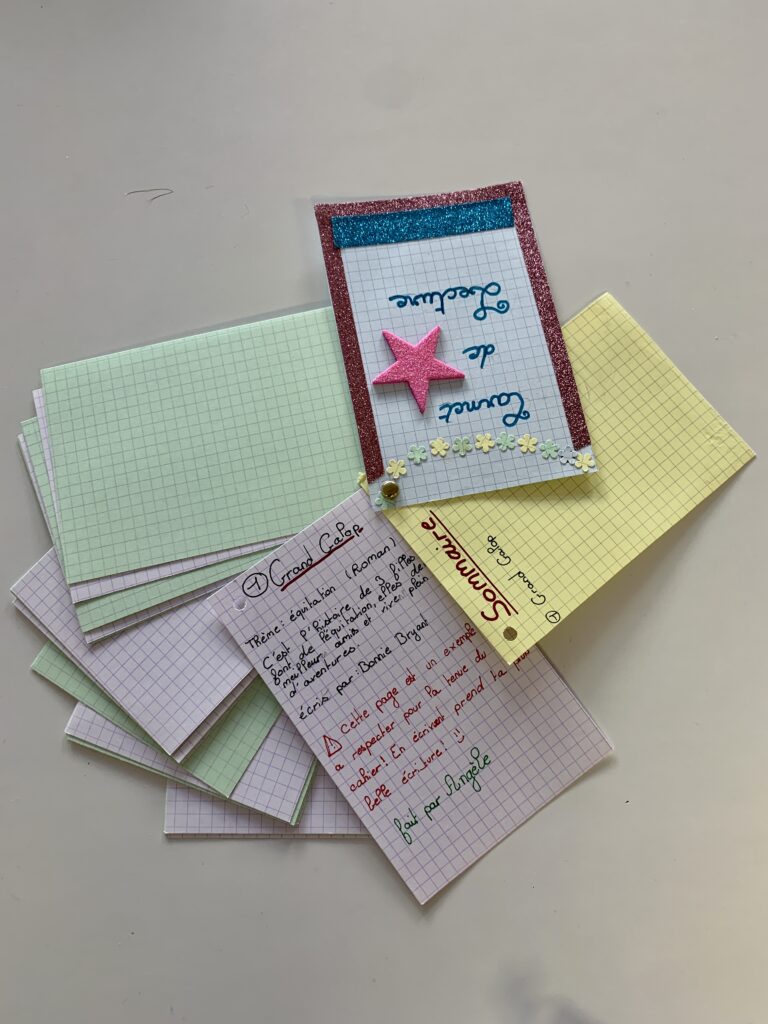 Carnet
de
Lecture
Sommaire
① Grand Galop
① Grand Galop
Thème : équitation (Roman)
C'est l'histoire de 3 filles
font de l'équitation, elles de
meilleur amis et plein
d'aventures.
écris par : Bonnie Bryant
⚠ Cette page est un exemple
a respecter pour la tenue du
cahier ! En écrivant prend ta
belle écriture ! :)
fait par Angèle